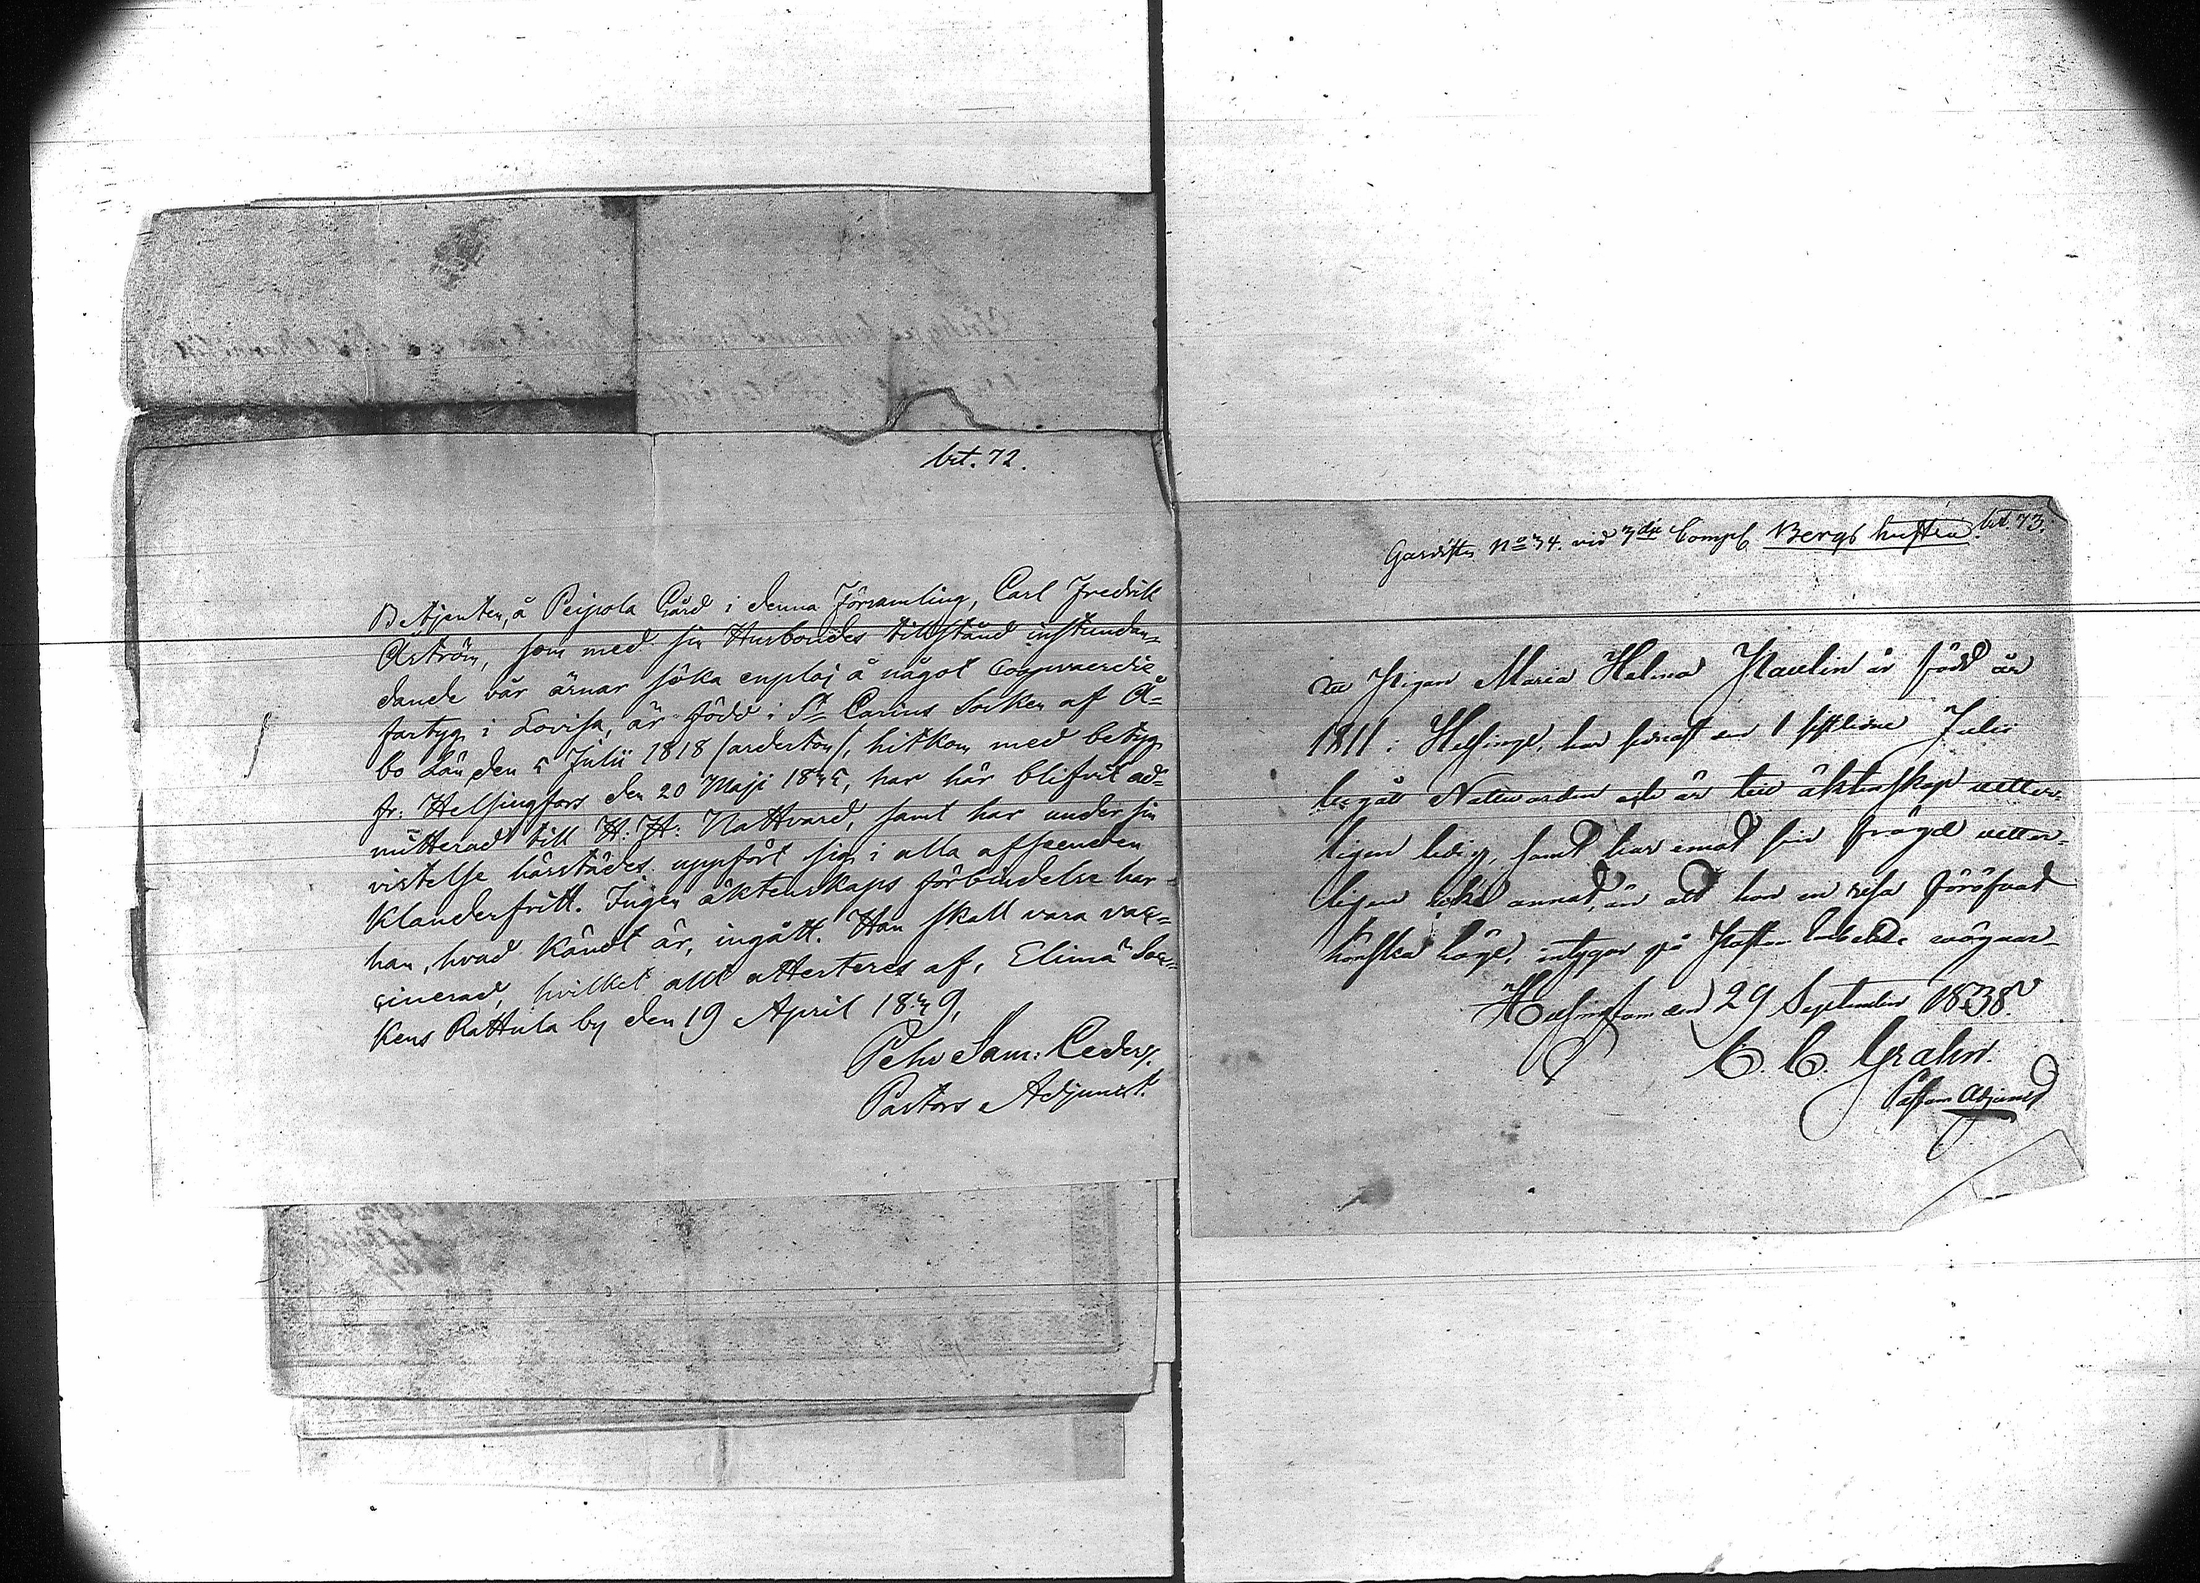 bet. 72.
Betjenten, å Peipola Gård i denna Församling, Carl Fredrik
Åström, som med sin Husbondes tillstånd instundan-
dande vår ärnar söka enploj å något Commercie
fartyg i Lovisa, är född i St Carins Socken af Å-
bo Län den 5 Julii 1818 /aderton/, hitkom med betyg
fr: Helsingfors den 20 Maji 1845, har här blifvit ad-
mitterad till H: H: Nattvard, samt har under sin
vistelse härstädes uppfört sig i alla afseenden
klanderfritt. Ingen äktenskaps förbindelse har
han, hvad kändt är, ingått. Han skall vara vac-
cinerad, hvilket allt attesteres af, Elimä Soc-
kens Rattula by den 19 April 1849,
Pehr Sam: Ceder
Pastors Adjunct.
bet. 73.
Gardisten No 34. vid 3dje Comp. Bergs hustru.
Att Pigan Maria Helena Paulin är född år
1811 i Helsinge, har sednast den 1 sistledne Julii
begått Nattvarden och är till äktenskap vetter-
ligen ledig, samt har emot sin frägd vetter-
ligen icke annat, än att hon en resa föröfvat
, intygar på Pastors Embetets wägnar
Helsingfors den 29 September 1838.
C. C. Grahn.
Pastors Adjunct